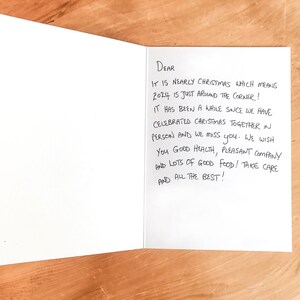 DEAR
IT IS NEARLY CHRISTMAS WHICH MEANS
2024 IS JUST AROUND THE CORNER!
IT HAS BEEN A WHILE SINCE WE HAVE
CELEBRATED CHRISTMAS TOGETHER IN
PERSON AND WE MISS YOU. WE WISH
YOU GOOD HEALTH, PLEASANT COMPANY
AND LOTS OF GOOD FOOD! TAKE CARE
AND ALL THE BEST!